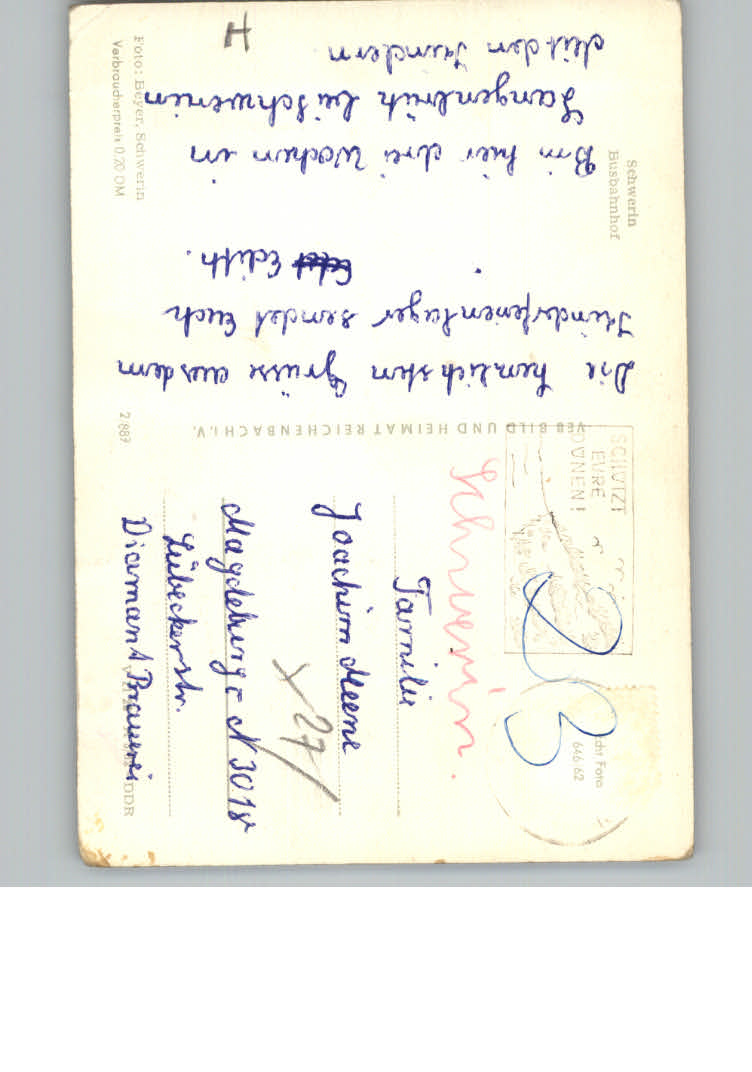 Schwerin
Busbahnhof
Die herzlichsten Grüsse aus dem
Kinderferienlager sendet Euch
Edith.
Bin hier drei Wochen in
Langenbrütz bei Schwerin
Mit den Kindern
H
Foto: Beyer, Schwerin
Verbraucherpreis 0,20 DM
VEB BILD UND HEIMAT REICHENBACH I.V.
2/887
SCHÜTZT
EURE
DÜNEN!
Echt Foto
646 62
Schwerin.
Familie
Joachim Meene
Magdeburg-N 3018
Lübeckerstr.
Diamant Brauerei
DDR
x 27/